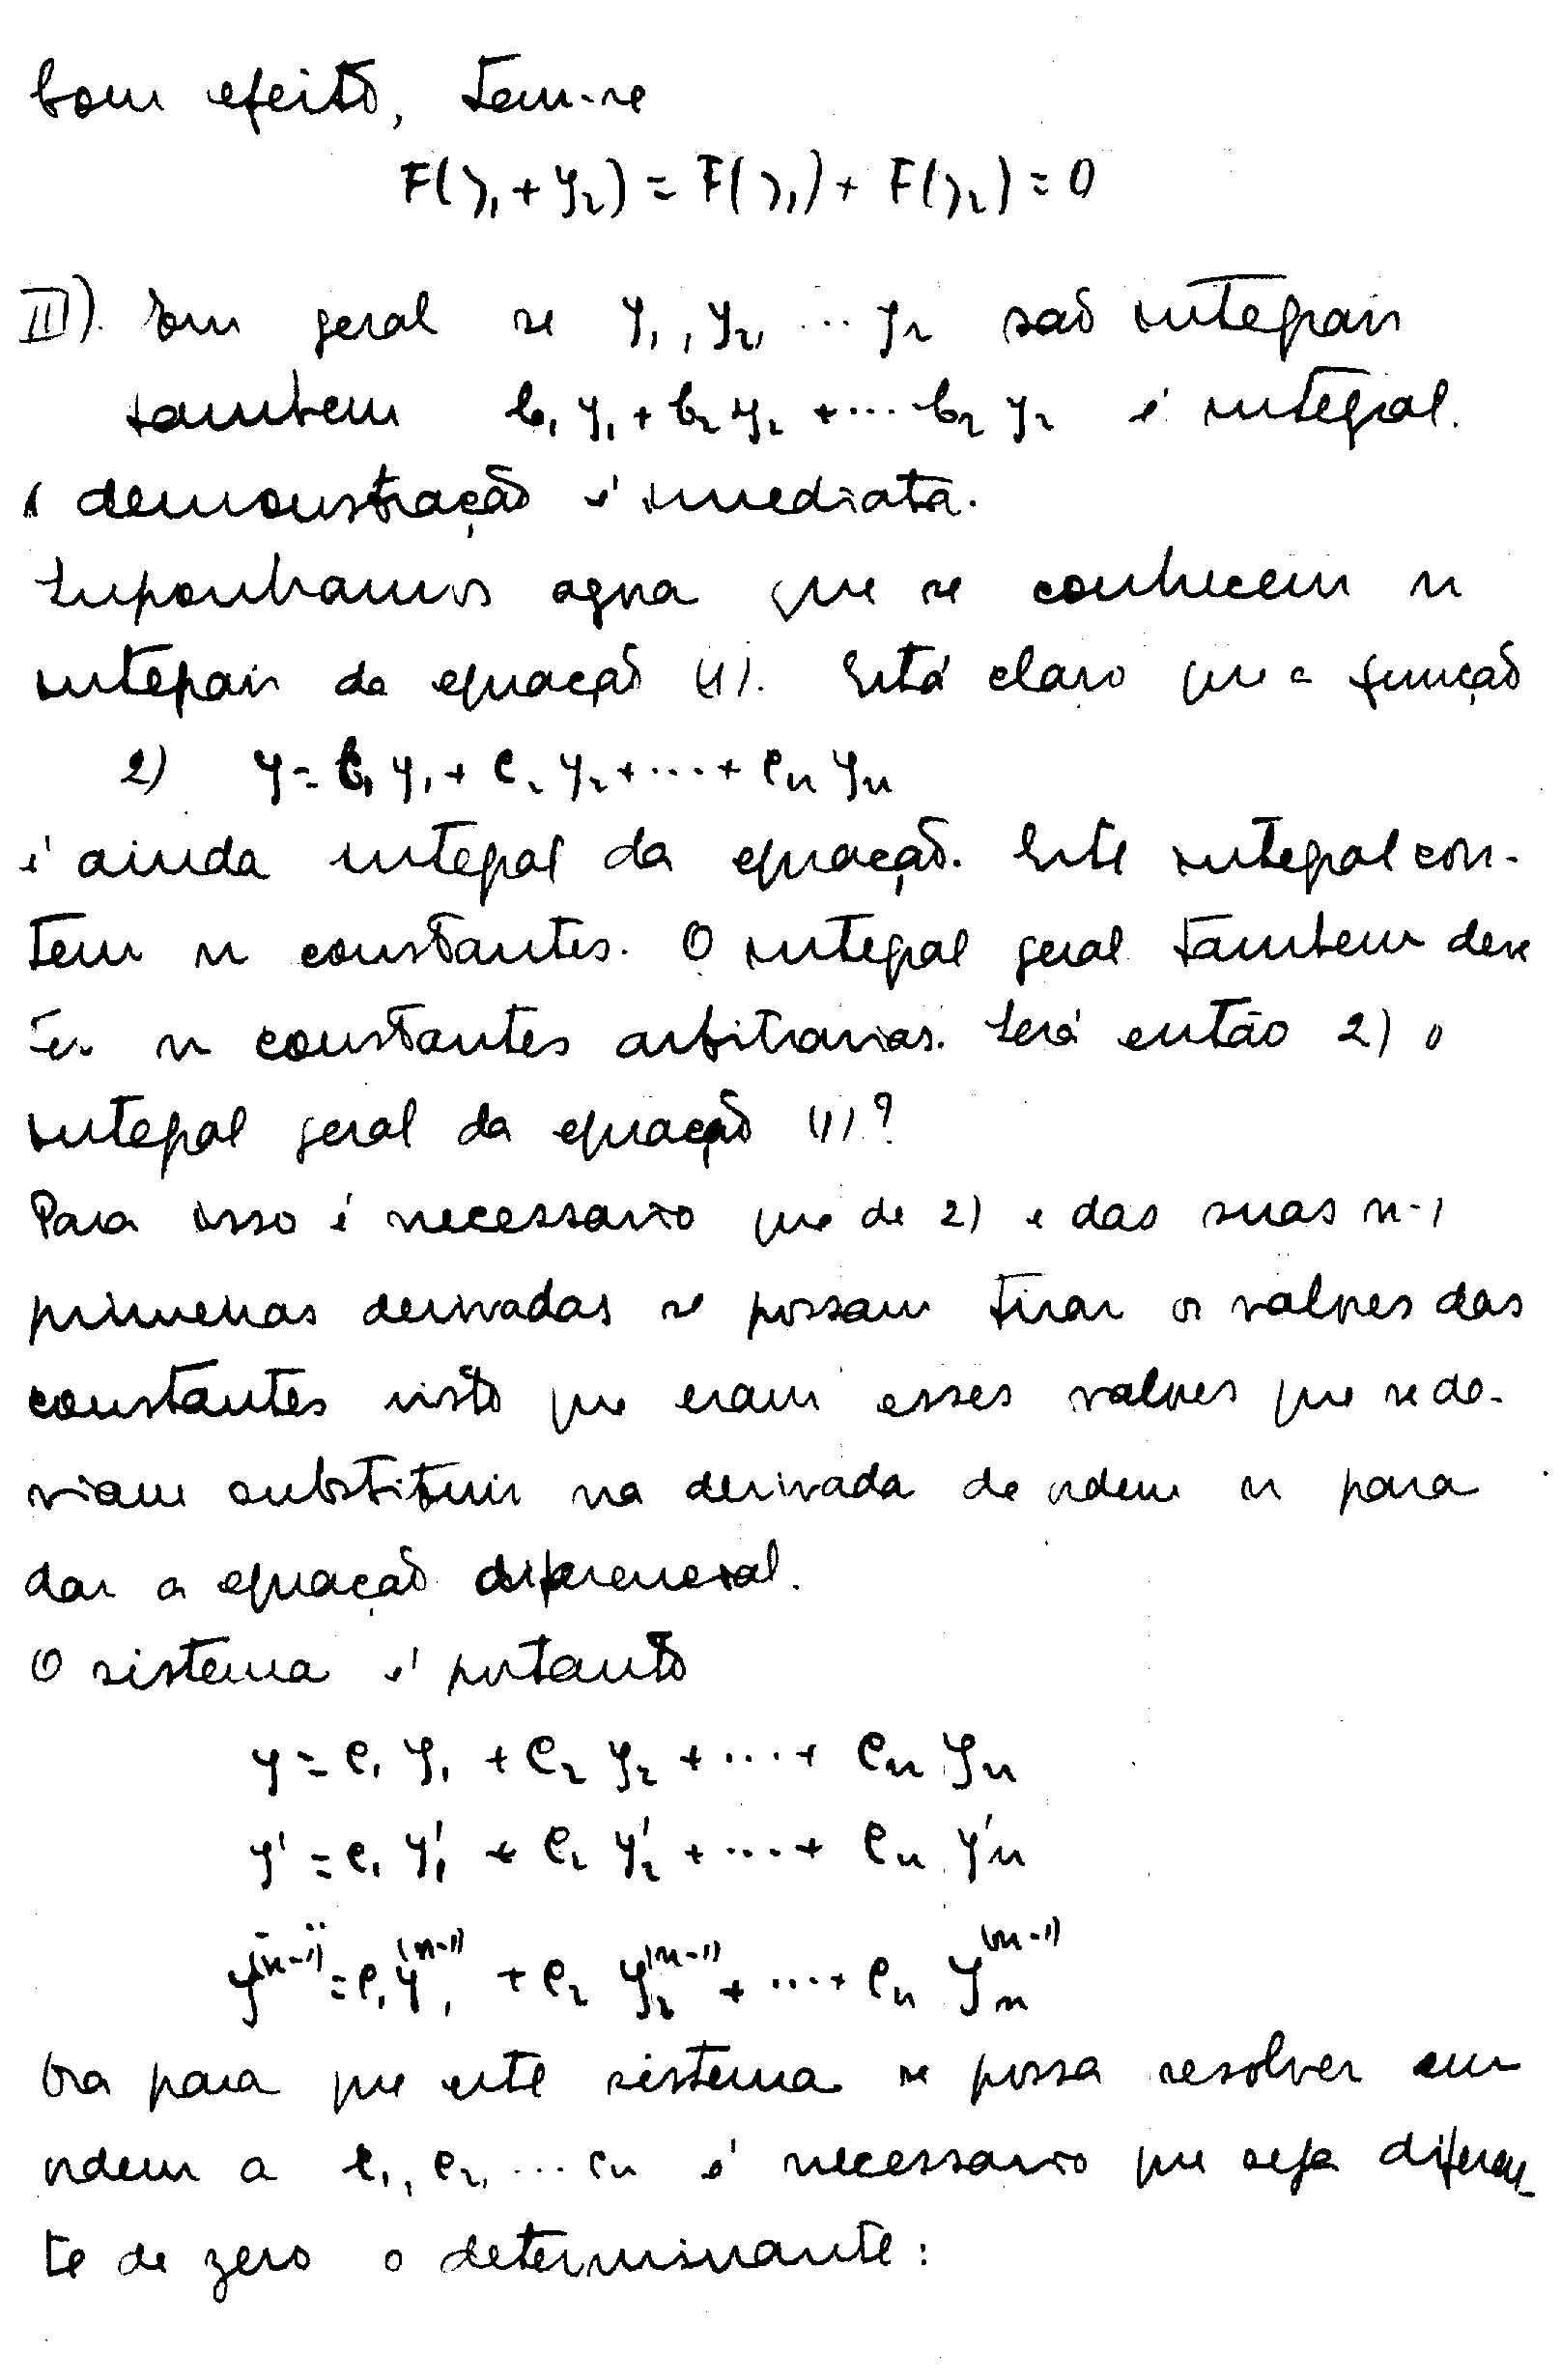 Com efeito, tem-se
F(y₁ + y₂) = F(y₁) + F(y₂) = 0
III). Em geral se y₁, y₂, ... y₂ são integrais
tambem C₁ y₁ + C₂ y₂ + ... C₂ y₂ é integral.
A demonstração é imediata.
Suponhamos agora que se conhecem n
integrais da equação (1). Está claro que a função
2) y = C₁ y₁ + C₂ y₂ + ... + Cₙ yₙ
é ainda integral da equação. Este integral con-
tem n constantes. O integral geral tambem deve
ter n constantes arbitrarias. Será então 2) o
integral geral da equação (1)?
Para isso é necessario que de 2) e das suas n-1
primeiras derivadas se possam tirar os valores das
constantes visto que eram esses valores que se de-
viam substituir na derivada de ordem n para
dar a equação diferencial.
O sistema é portanto
y = C₁ y₁ + C₂ y₂ + ... + Cₙ yₙ
y' = C₁ y'₁ + C₂ y'₂ + ... + Cₙ y'ₙ
.. ..
y⁽ⁿ⁻¹⁾ = C₁ y₁⁽ⁿ⁻¹⁾ + C₂ y₂⁽ⁿ⁻¹⁾ + ... + Cₙ yₙ⁽ⁿ⁻¹⁾
Ora para que este sistema se possa resolver em
ordem a C₁, C₂, ... Cₙ é necessario que seja diferen-
te de zero o determinante: